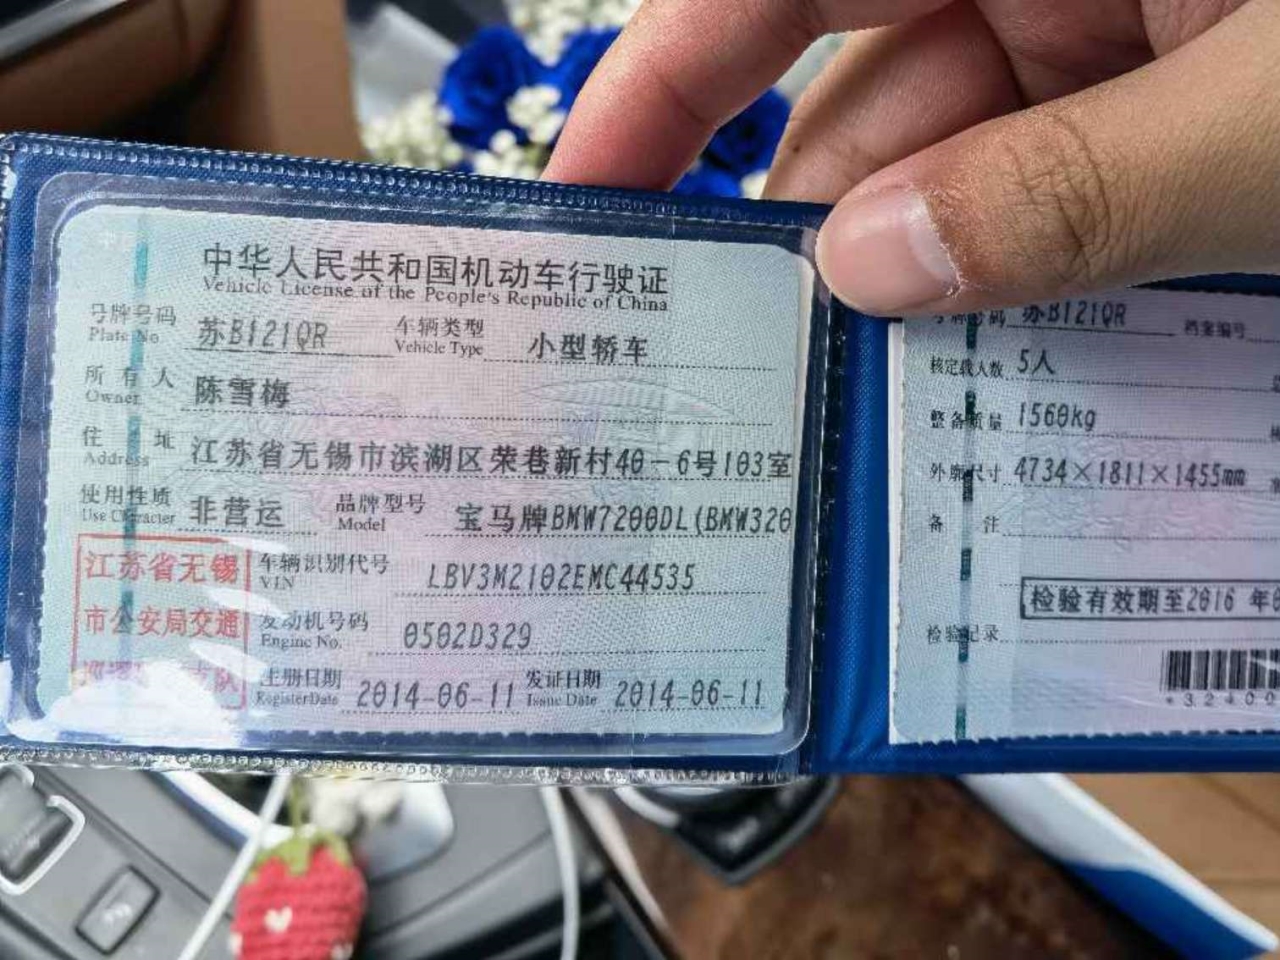 中华人民共和国机动车行驶证
Vehicle License of the People's Republic of China
号牌号码 苏B121QR 车辆类型 小型轿车
Plate No Vehicle Type
所有人 陈雪梅
Owner
住址 江苏省无锡市滨湖区荣巷新村40-6号103室
Address
使用性质 非营运 品牌型号 宝马牌BMW7200DL(BMW320
Use Character Model
江苏省无锡
市公安局交通
车辆识别代号 LBV3M2102EMC44535
VIN
发动机号码 0502D329
Engine No.
注册日期 2014-06-11 发证日期 2014-06-11
Register Date Issue Date
号牌号码 苏B121QR 档案编号
核定载人数 5人
整备质量 1560kg
外廓尺寸 4734×1811×1455mm
备注
检验有效期至2016 年
检验记录
*32400